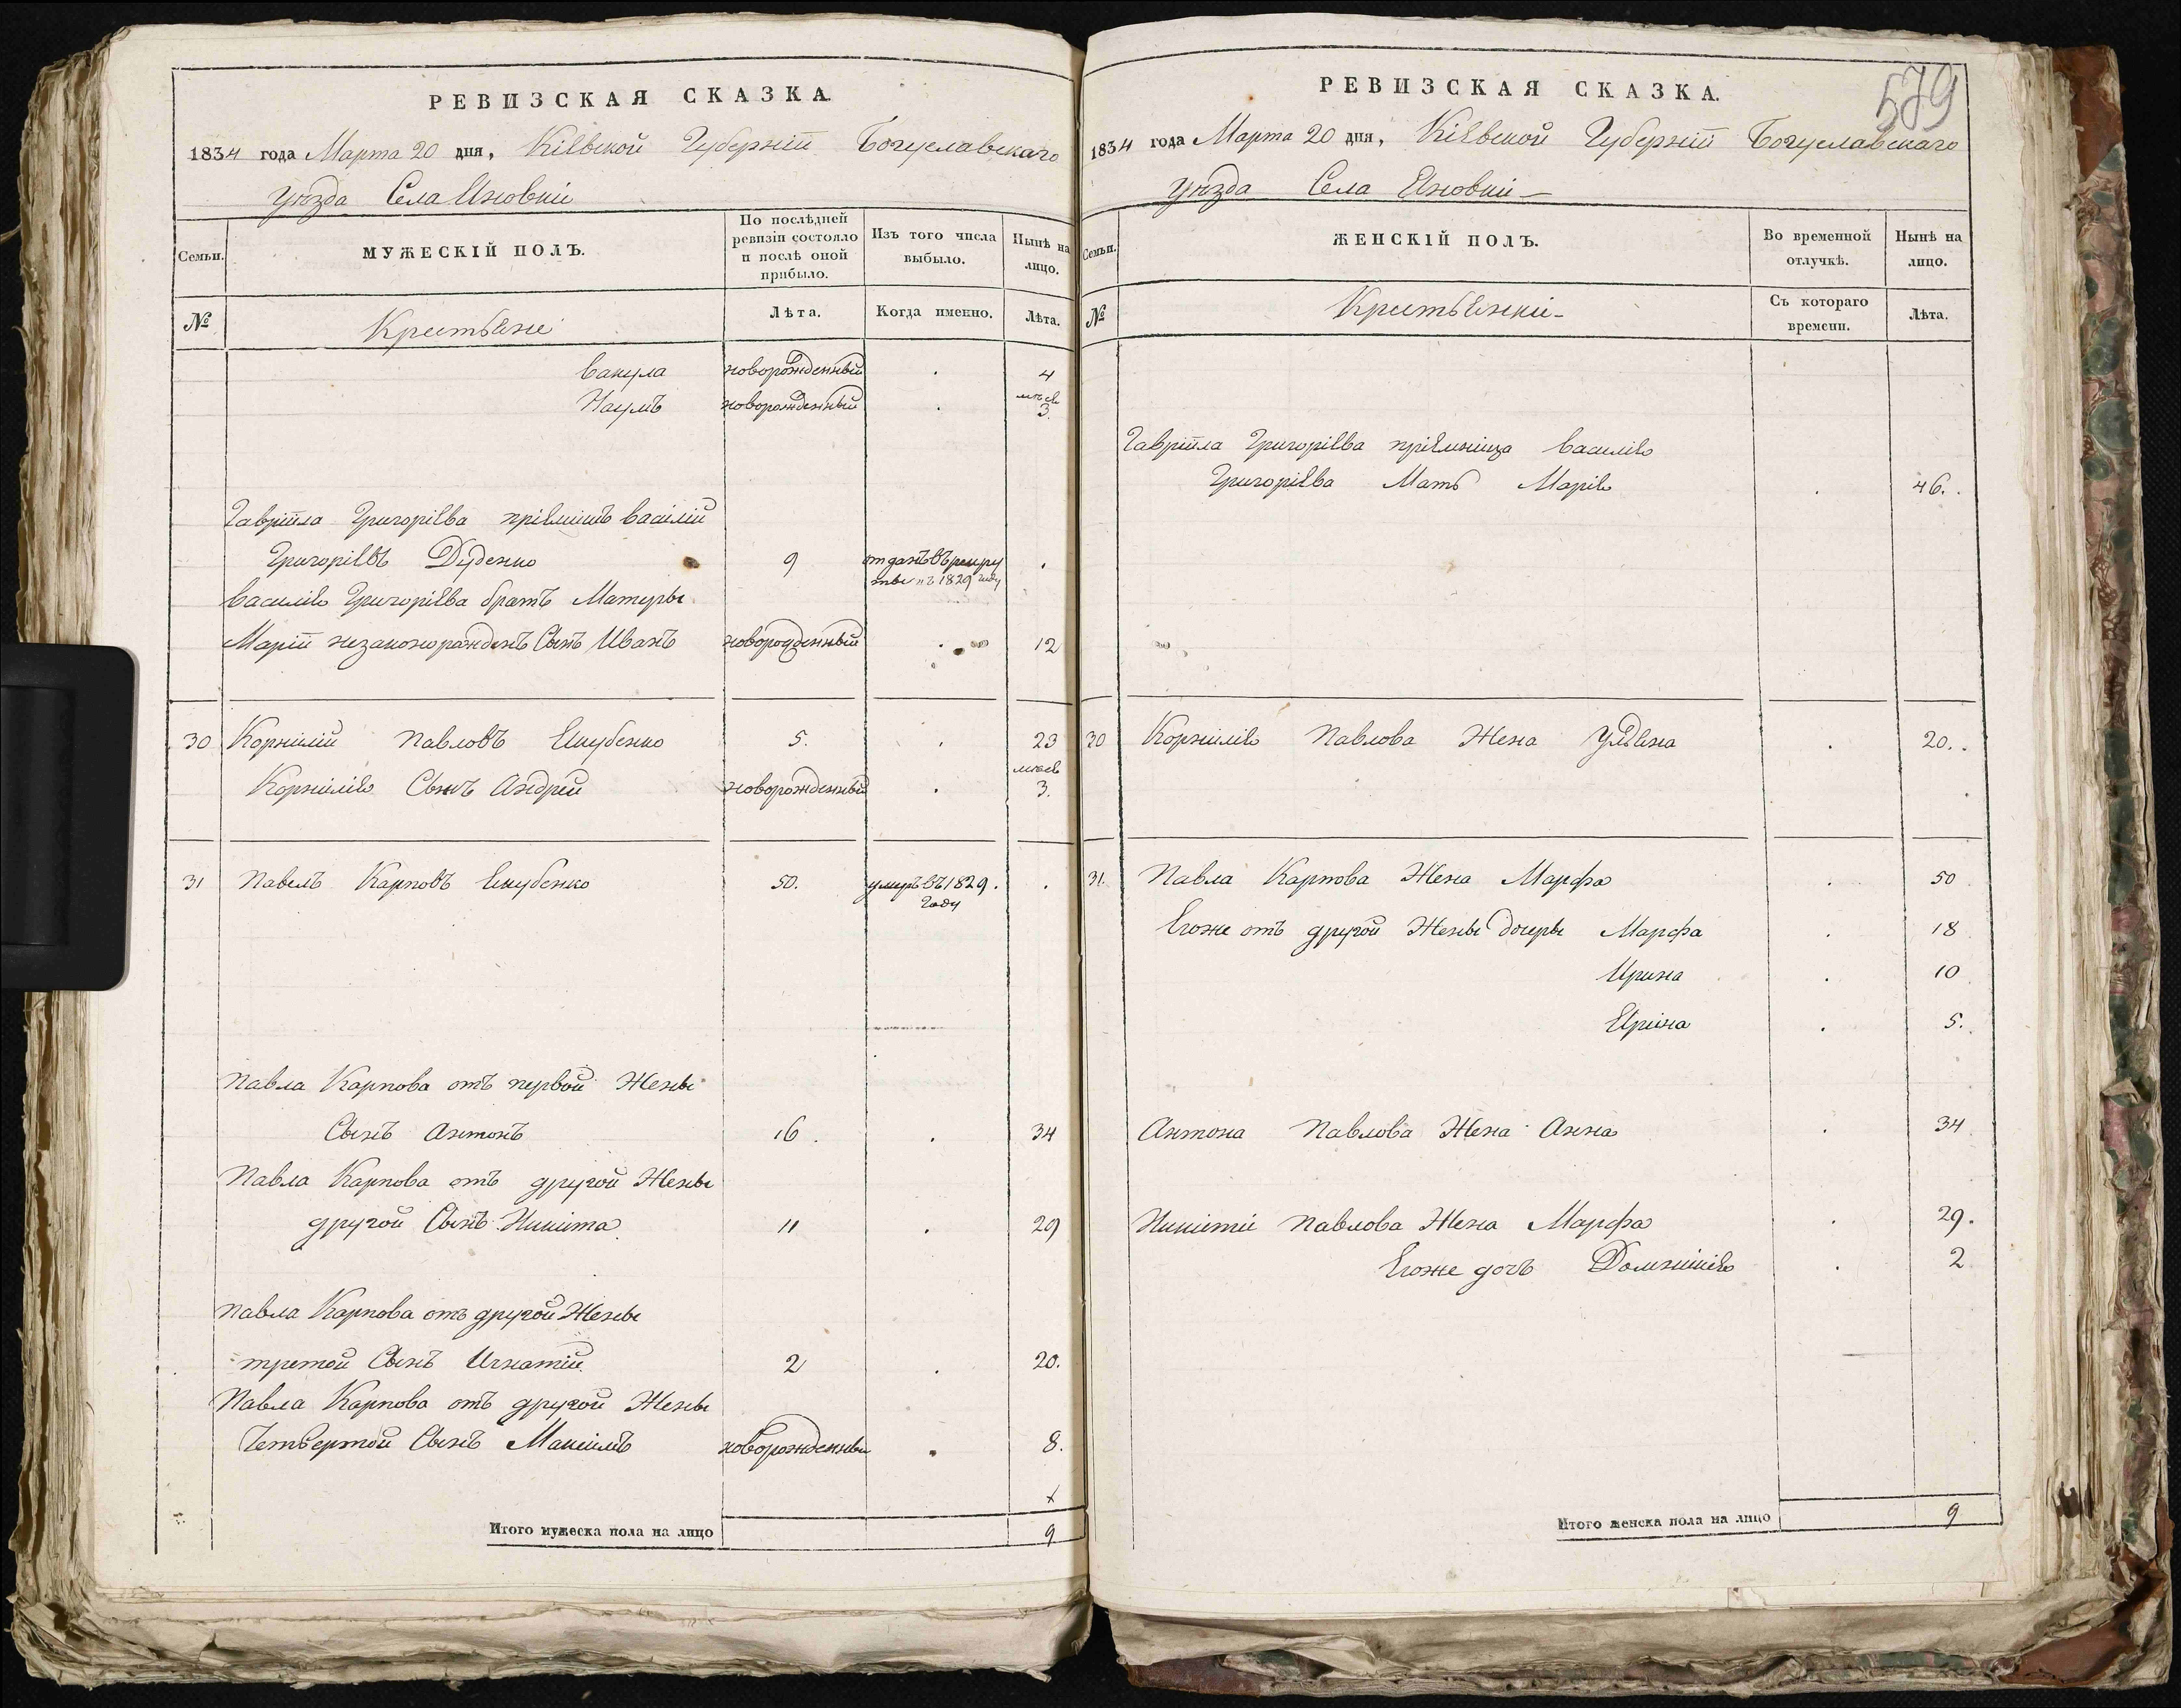 РЕВИЗСКАЯ СКАЗКА.
1834 года Марта 20 дня, Кіевской Губерніи Богуславскаго
Уѣзда Села Яновки
Семьи.
МУЖЕСКІЙ ПОЛЪ.
По послѣдней ревизіи состояло и послѣ оной прибыло.
Изъ того числа выбыло.
Нынѣ на лицо.
№
Крестьяне
Лѣта.
Когда именно.
Лѣта.
Вакула новорожденный . 4
Наумъ новорожденный . мѣсяц 3.
Гавріила Григоріева пріемышъ Василій
Григоріевъ Дуденко 9 отданъ въ рекруты въ 1829 году .
Василія Григоріева братъ Матеры
Маріи незаконорожденъ Сынъ Иванъ новорожденный . 12
30 Корнилій Павловъ Якубенко 5. . 23
Корнилія Сынъ Андрей новорожденный . мѣсяц 3.
31 Павелъ Карповъ Якубенко 50. умеръ въ 1829. году .
Павла Карпова отъ первой Жены
Сынъ Антонъ 16. . 34
Павла Карпова отъ другой Жены
другой Сынъ Никита 11 . 29
Павла Карпова отъ другой Жены
третой Сынъ Игнатій 2 . 20.
Павла Карпова отъ другой Жены
Четвертой Сынъ Максимъ новорожденны . 8.
Итого мужеска пола на лицо 9
579
РЕВИЗСКАЯ СКАЗКА.
1834 года Марта 20 дня, Кіевской Губерніи Богуславскаго
Уѣзда Села Яновки
Семьи.
ЖЕНСКІЙ ПОЛЪ.
Во временной отлучкѣ.
Нынѣ на лицо.
№
Крестьянки
Съ котораго времени.
Лѣта.
Гавріила Григоріева пріемница Василія
Григоріева Мать Марія . 46.
30 Корнилія Павлова Жена Ульяна . 20.
31. Павла Карпова Жена Марфа . 50
Егоже отъ другой Жены дочеры Марфа . 18
Ирина . 10
Ярина . 5.
Антона Павлова Жена Анна . 34
Никиты Павлова Жена Марфа . 29.
Егоже дочь Домникія . 2
Итого женска пола на лицо 9